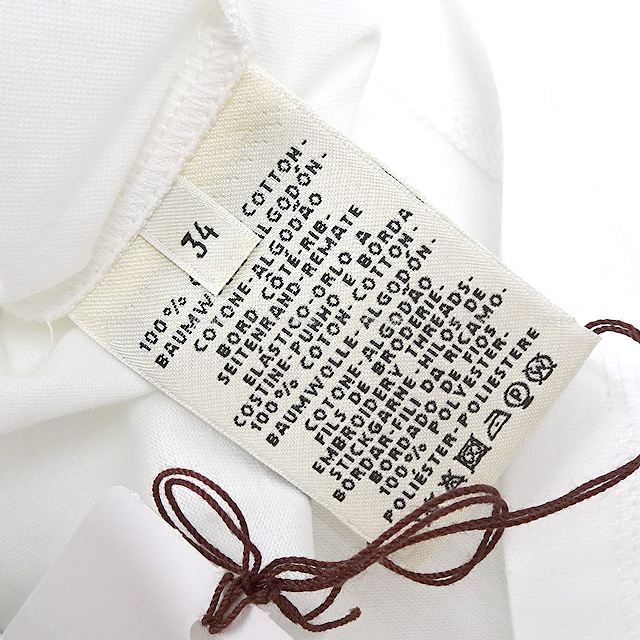 34
100% COTTON-
BAUMWOLLE-ALGODÓN-
COTONE-ALGODÃO
BORD CÔTÉ-RIB-
SEITENRAND-REMATE
ELÁSTICO-ORLO A
COSTINE-PUNHO / BORDA
100% COTON-COTTON-
BAUMWOLLE-ALGODÓN-
COTONE-ALGODÃO.
FILS DE BRODERIE-
EMBROIDERY THREADS-
STICKGARNE-HILOS DE
BORDAR-FILI DA RICAMO-
BORDADO DE FIOS
100% POLYESTER-
POLIÉSTER-POLIESTERE
P